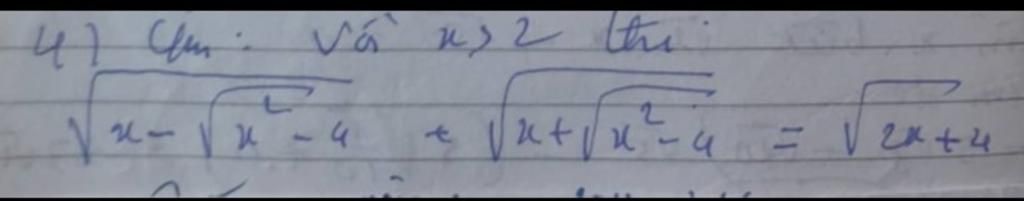 4) Cm: Với x>2 thì
√(x-√(x²-4)) + √(x+√(x²-4)) = √(2x+4)